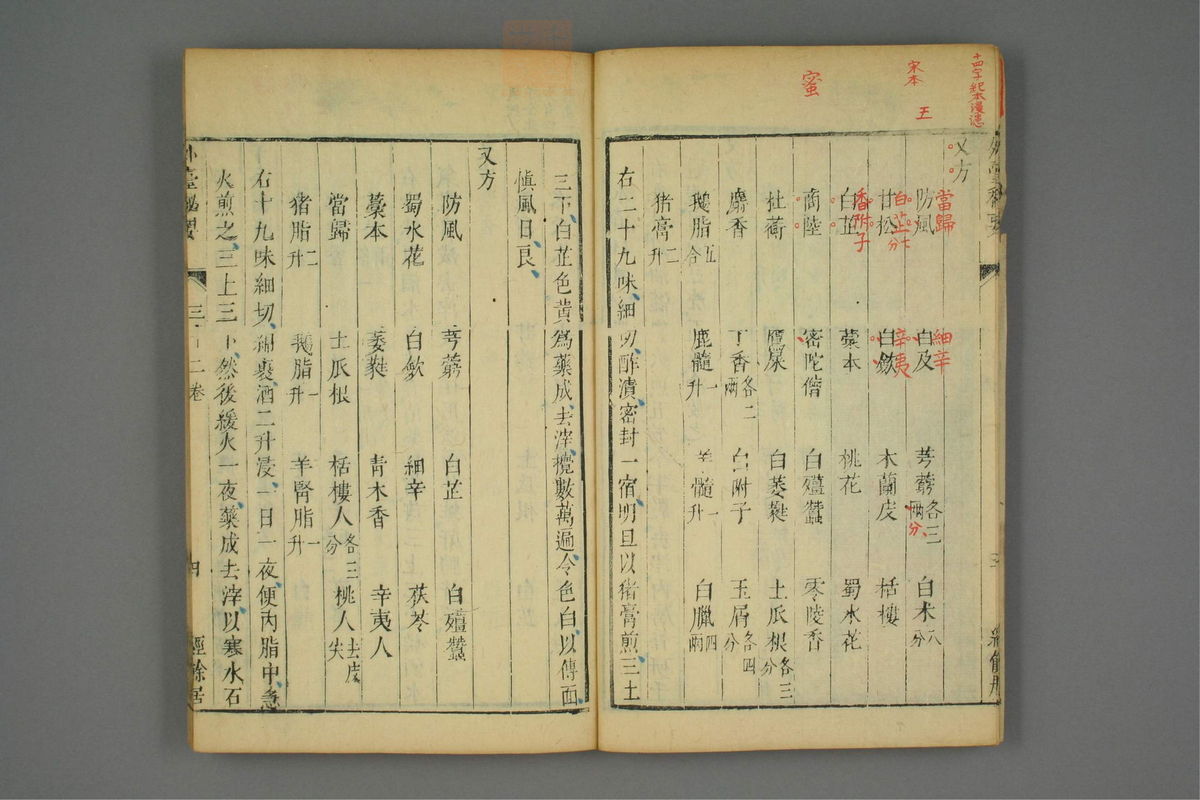 十四字紀本漫患
宋本
五
蜜
又方
防風 白及 芎藭各三兩 白朮八分
當歸 細辛
分
甘松 白斂 木蘭皮 栝樓
白芷七分 辛夷
白芷 藁本 桃花 蜀水花
香附子
商陸 密陀僧 白殭蠶 零陵香
杜蘅 鷹屎 白萎蕤 土瓜根各三分
麝香 丁香各二兩 白附子 玉屑各四分
鵝脂五合 鹿髓一升 羊髓一升 白臘四兩
猪膏二升
右二十九味細切酢漬密封一宿明旦以猪膏煎三土
三下白芷色黃爲藥成去滓攪數萬遍令色白以傅面
慎風日良
又方
防風 芎藭 白芷 白殭蠶
蜀水花 白斂 細辛 茯苓
藁本 萎蕤 青木香 辛夷人
當歸 土瓜根 栝樓人各三分 桃人去皮尖
猪脂二升 鵝脂一升 羊腎脂一升
右十九味細切綿裹酒二升浸一日一夜便內脂中急
火煎之三上三下然後緩火一夜藥成去滓以寒水石
外臺秘要
三十二卷
四
經餘居